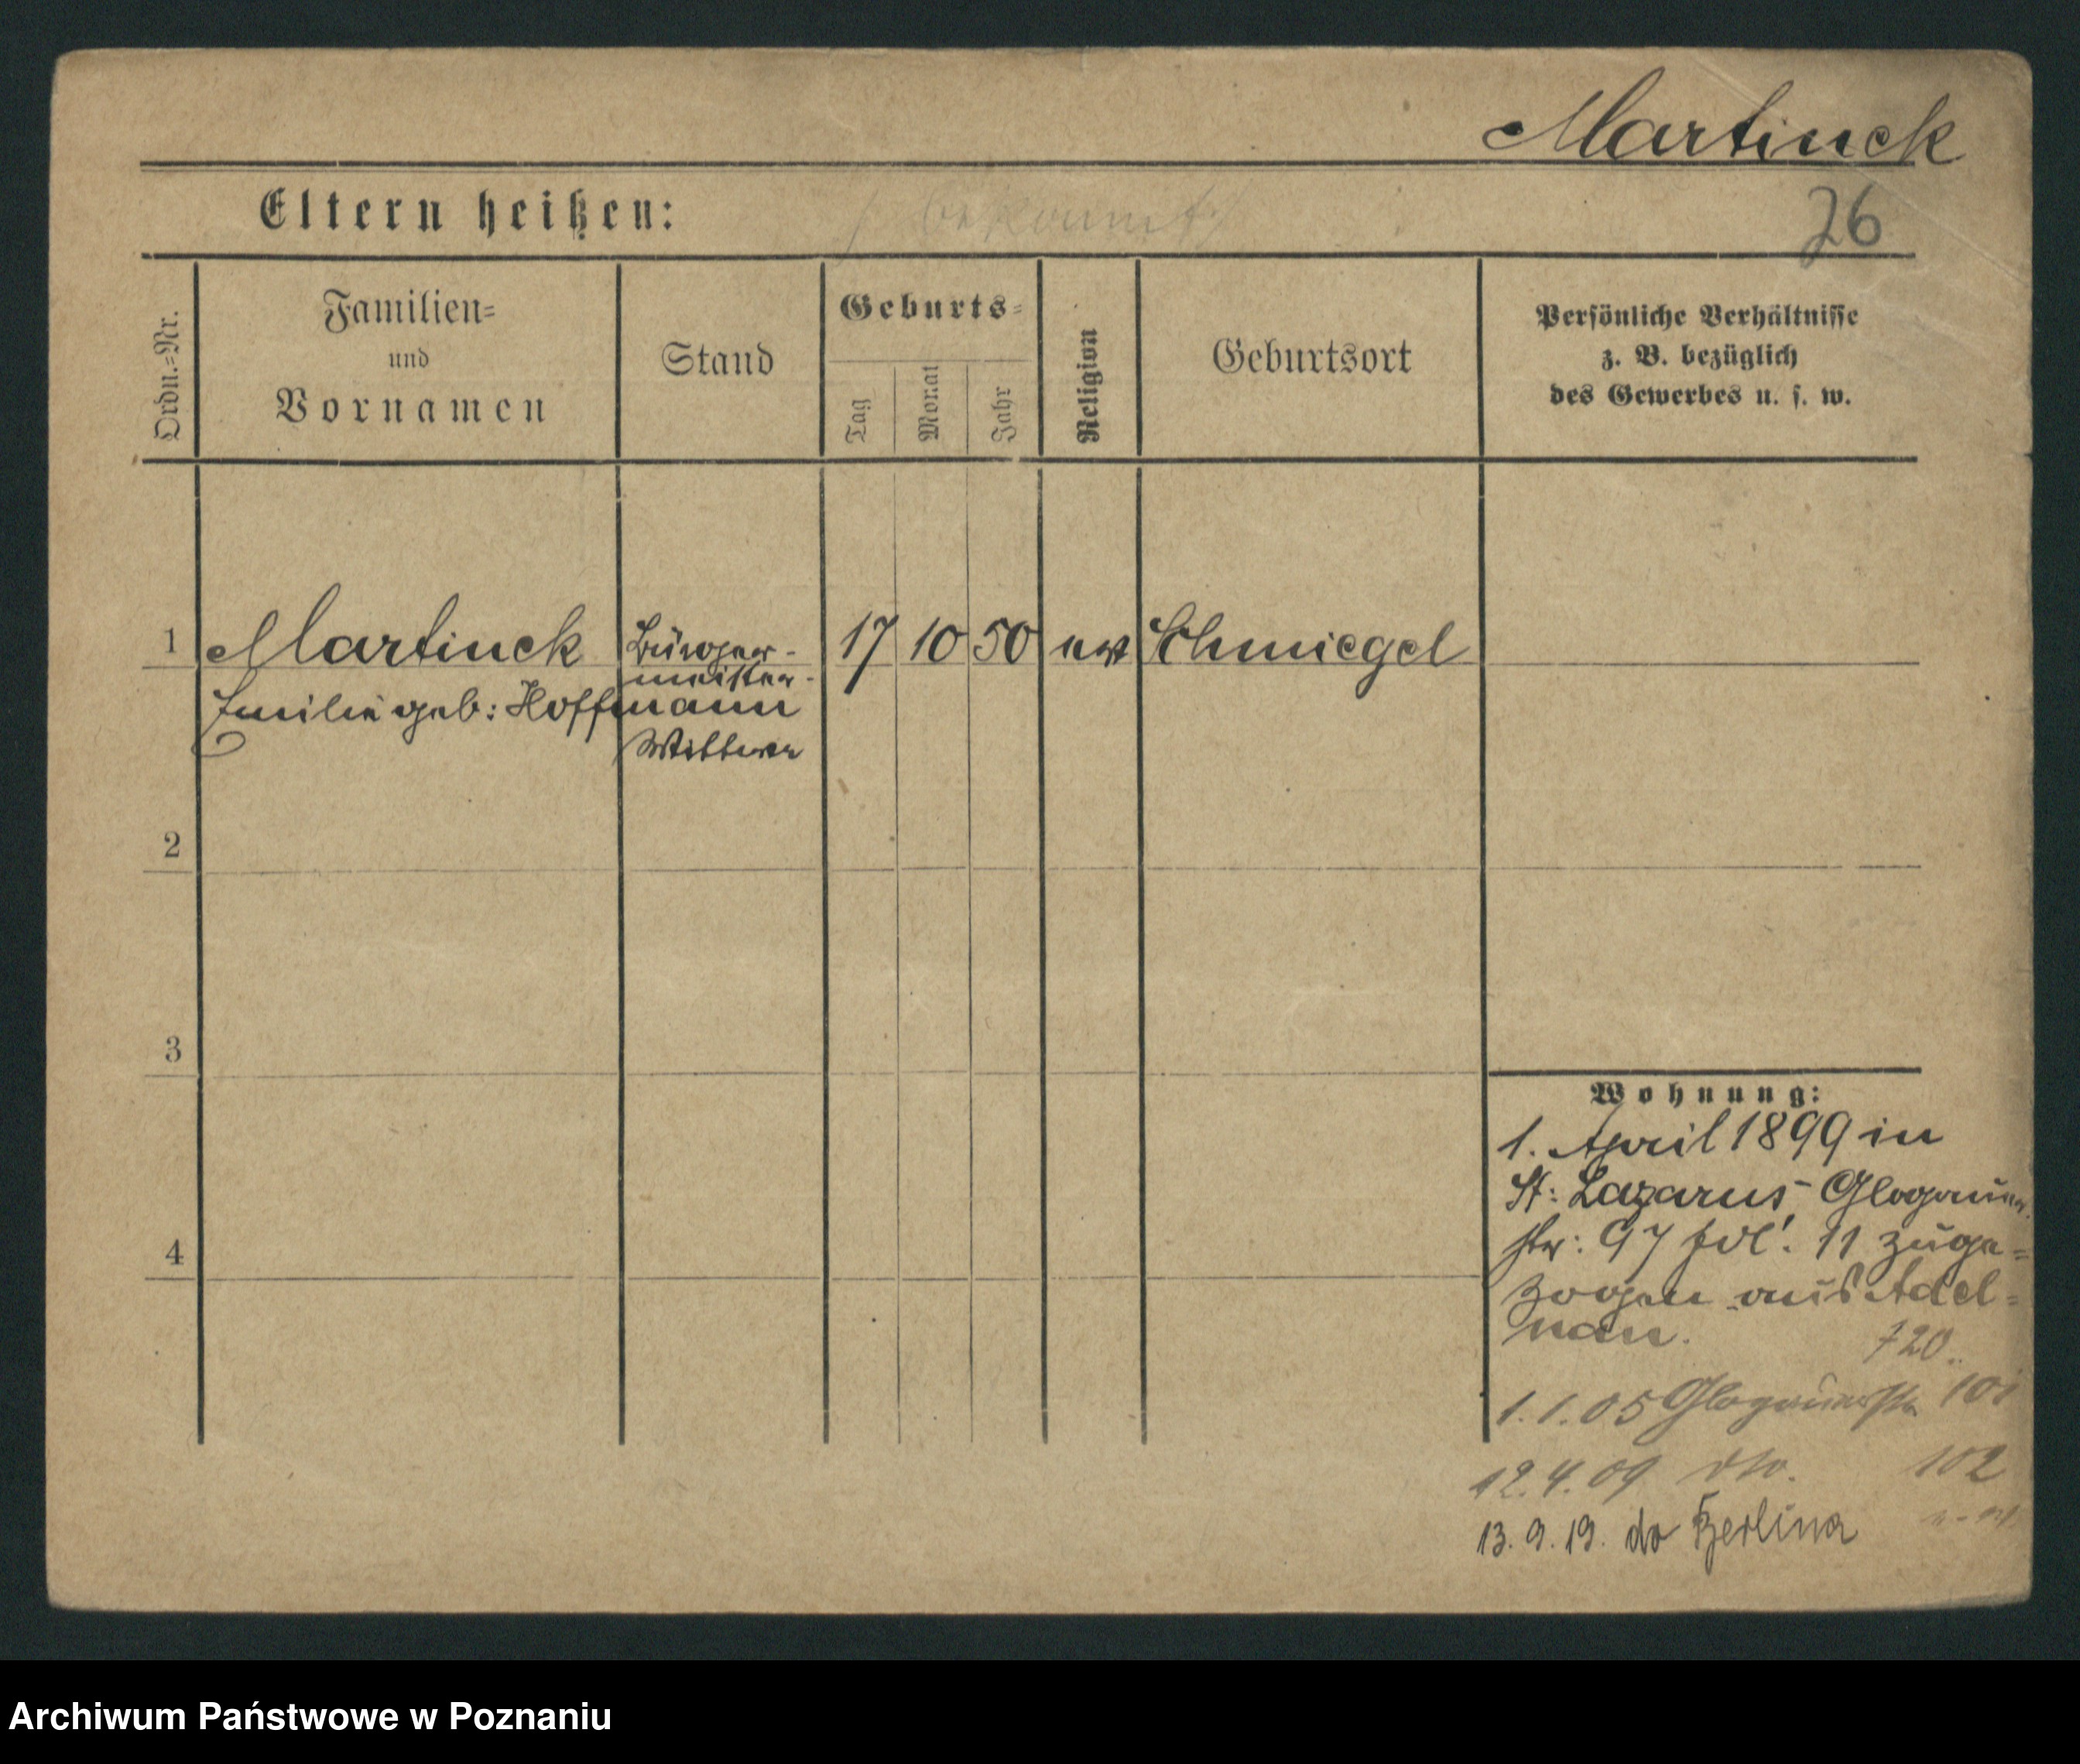 Martinck
Eltern heißen:
26
Ordn.-Nr.
Familien-
und
Vornamen
Stand
Geburts-
Tag
Monat
Jahr
Religion
Geburtsort
Persönliche Verhältnisse
z. B. bezüglich
des Gewerbes u. s. w.
1 Martinck Bürger- 17 10 50 ev Schmiegel
meister-
Emilie geb: Hoffmann
Wittwe
2
3
4
Wohnung:
1. April 1899 in
St: Lazarus, Glogauer
str: 97 fdl. 11 zuge=
zogen aus Adel=
nau.
720
1.1.05 Glogauerstr 101
12.4.09 dto. 102
13.9.19. do Berlina
Archiwum Państwowe w Poznaniu